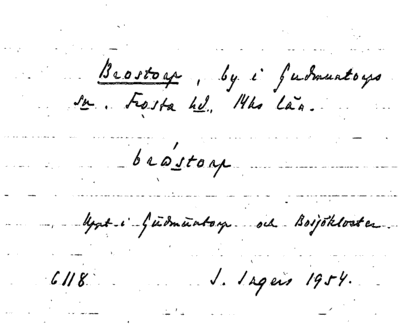 Brostorp, by i Gudmuntorps
sn. Frosta hd., Mhs län.
bròstorp
Uppt. i Gudmuntorp och Bosjökloster
6118 I. Ingers 1954.